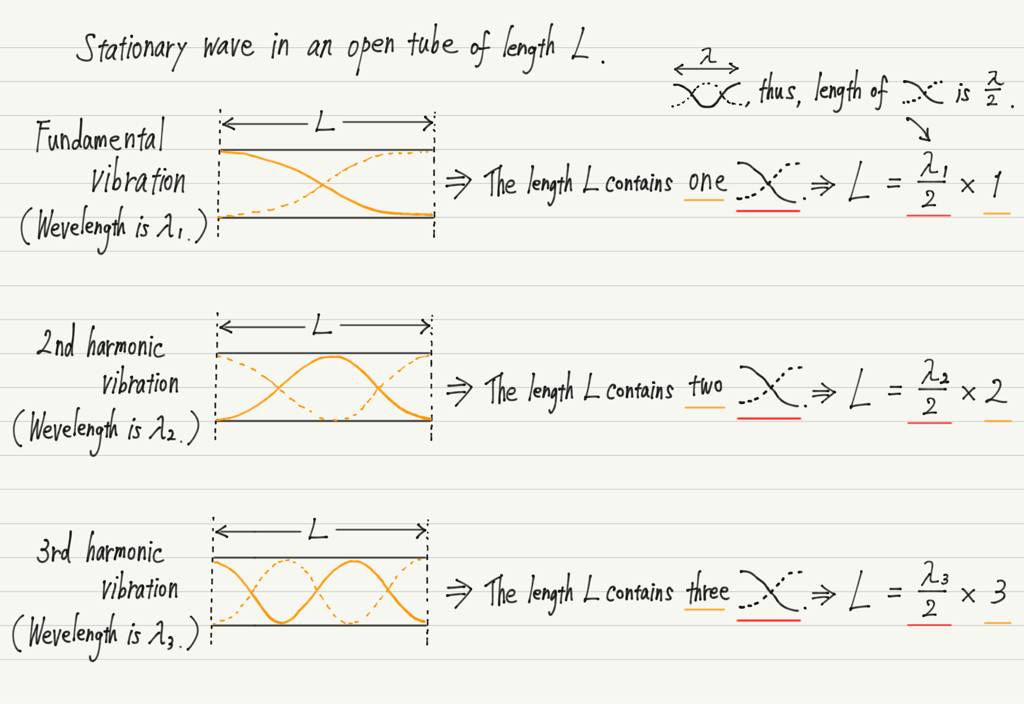 Stationary wave in an open tube of length L.
λ
, thus, length of is λ/2.
Fundamental
vibration
(Wevelength is λ₁.)
L
⇒ The length L contains one . ⇒ L = λ₁/2 × 1
2nd harmonic
vibration
(Wevelength is λ₂.)
L
⇒ The length L contains two . ⇒ L = λ₂/2 × 2
3rd harmonic
vibration
(Wevelength is λ₃.)
L
⇒ The length L contains three . ⇒ L = λ₃/2 × 3